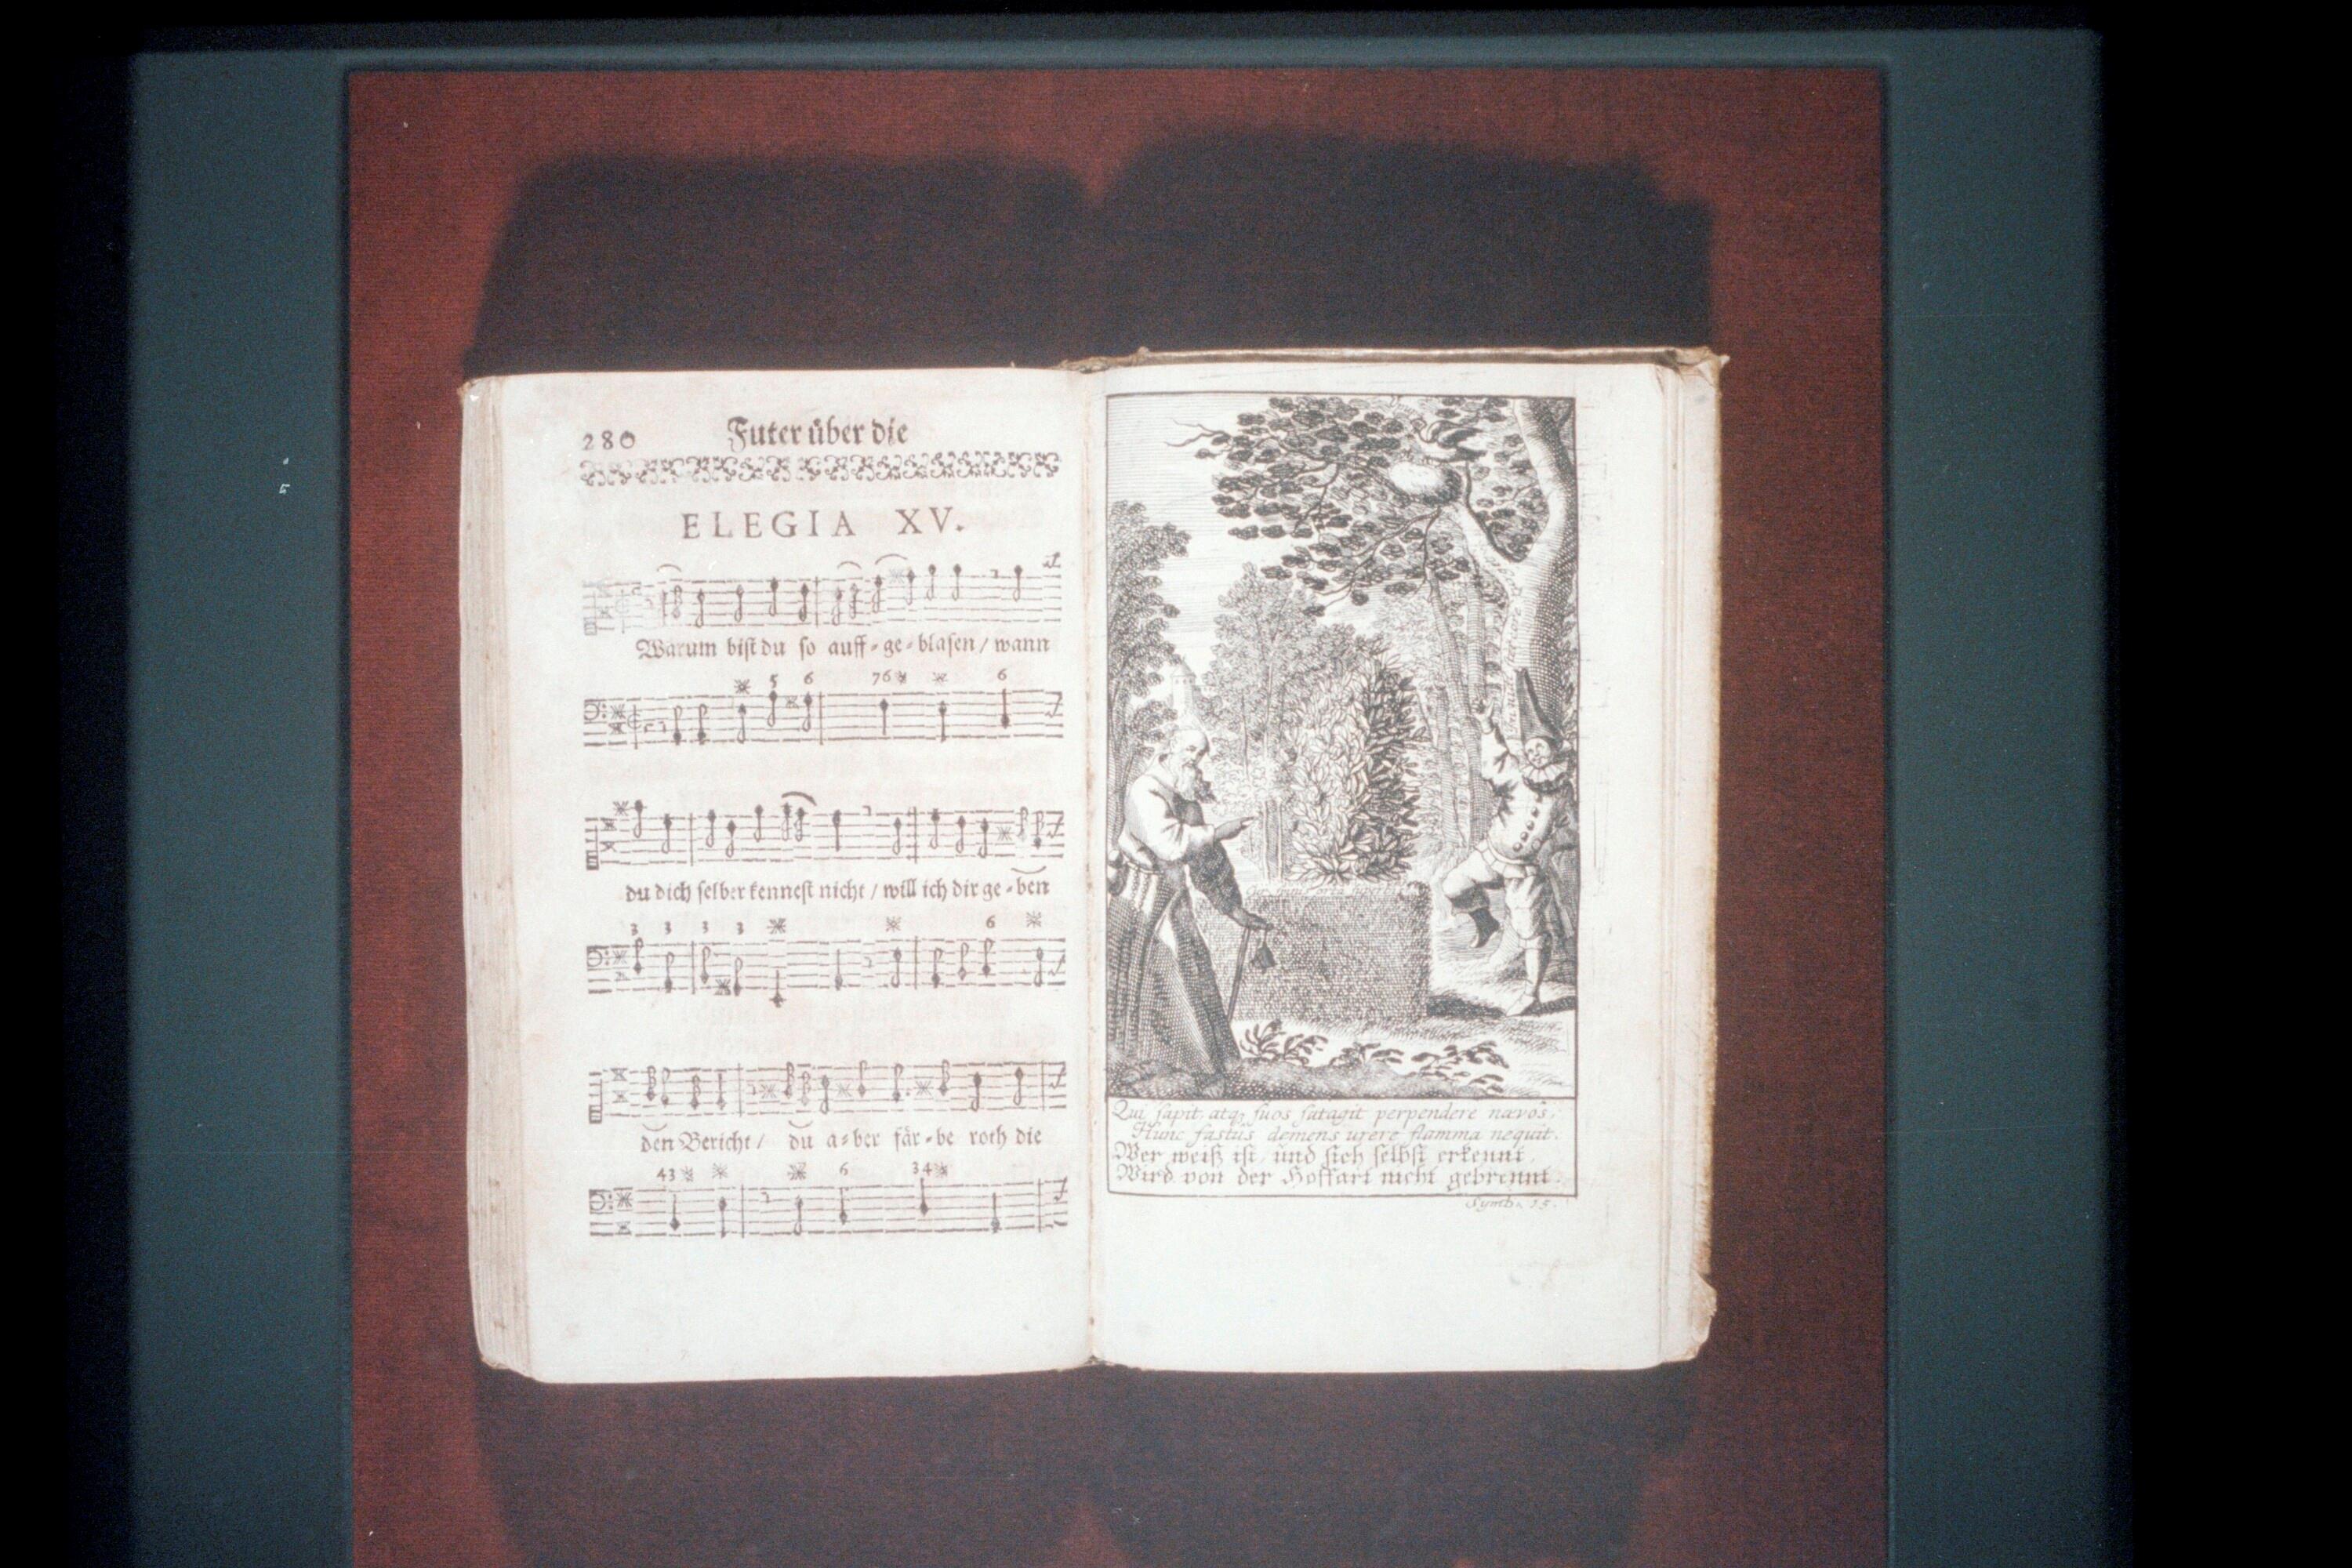 280
Futer über die
ELEGIA XV.
Warum bist du so auff-ge-blasen / wann
5 6 76 6
du dich selber kennest nicht / will ich dir ge-ben
3 3 3 3 6
den Bericht / du a-ber fär-be roth die
43 6 34
Qui sapit, atq; suos satagit perpendere nævos,
Hunc fastus demens urere flamma nequit.
Wer weiß ist, und sich selbst erkennt,
Wird von der Hoffart nicht gebrennt.
Symb. 15.